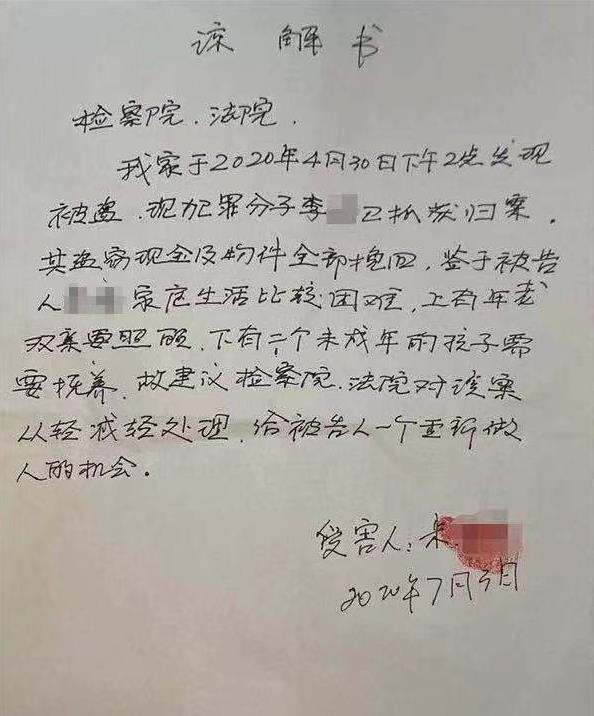 谅解书
检察院、法院、
我家于2020年4月30日下午2点发现
被盗,现犯罪分子李 已抓获归案,
其盗窃现金及物件全部挽回,鉴于被告
人 家庭生活比较困难,上有年老
双亲要照顾、下有二个未成年的孩子需
要抚养,故建议检察院、法院对该案
从轻减轻处理,给被告人一个重新做
人的机会。
受害人:
2020年7月3日